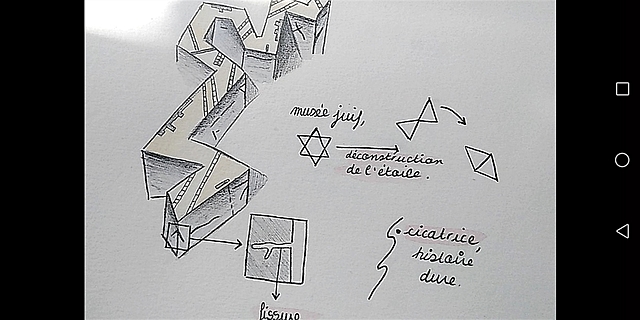 musée juif,
déconstruction
de l'étoile.
cicatrice,
histoire
dure.
fissure